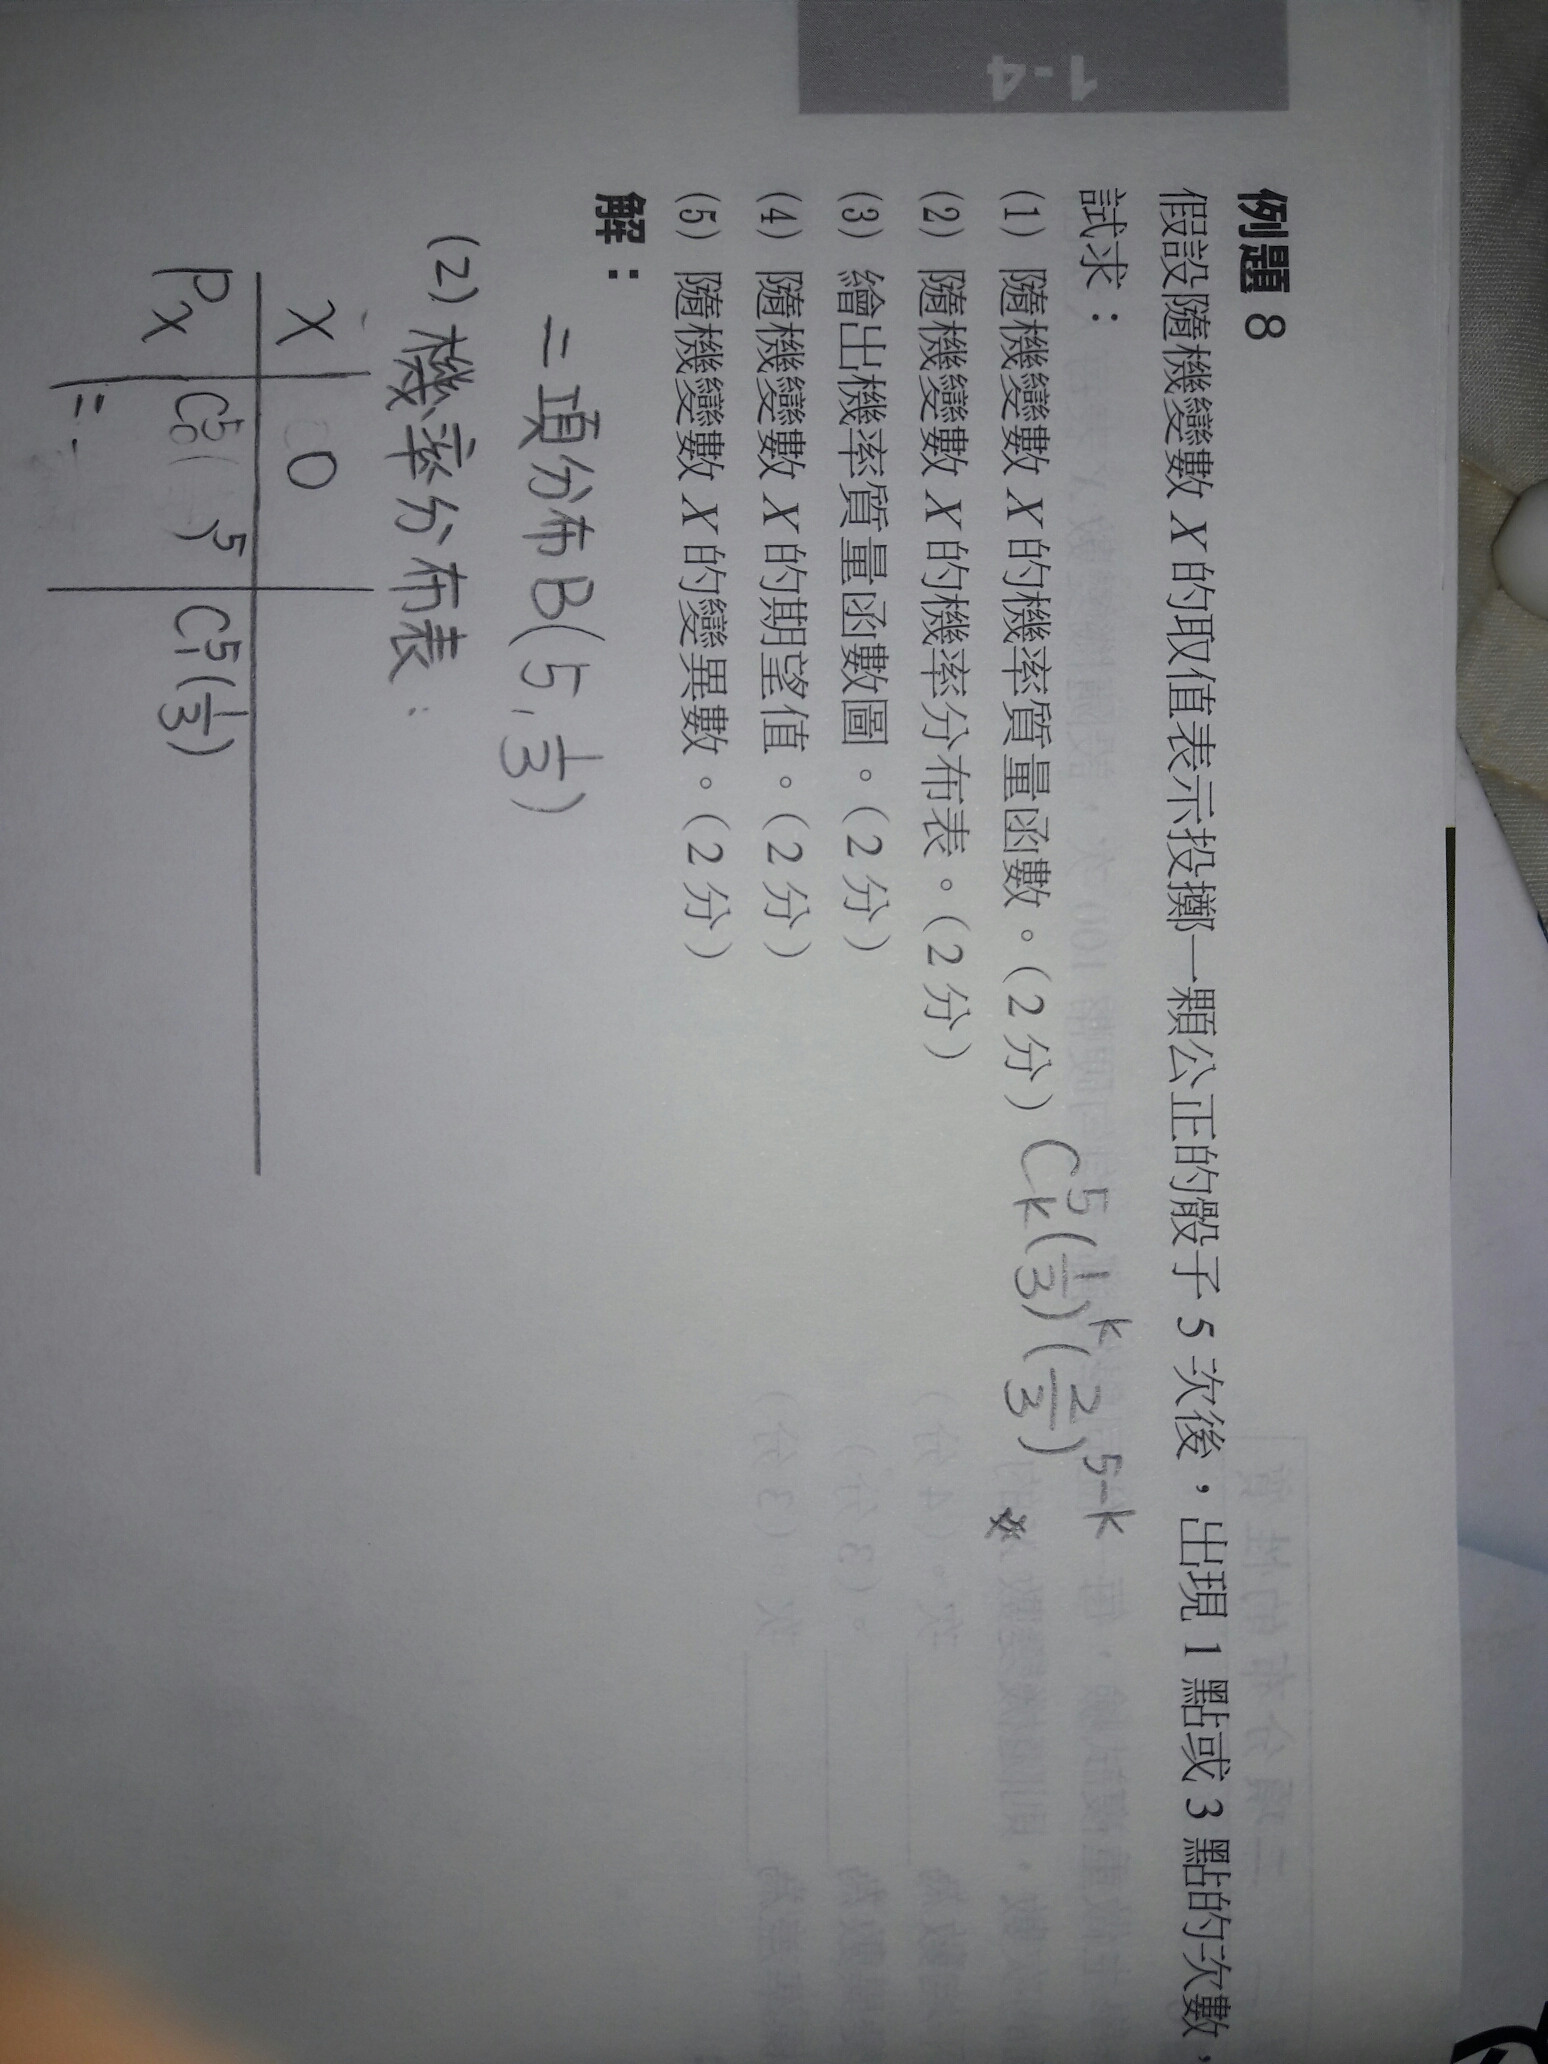 1-4
例題 8
假設隨機變數 X 的取值表示投擲一顆公正的骰子 5 次後，出現 1 點或 3 點的次數，
試求：
(1) 隨機變數 X 的機率質量函數。(2 分) C⁵ₖ(1/3)ᵏ(2/3)⁵⁻ᵏ
(2) 隨機變數 X 的機率分布表。(2 分)
(3) 繪出機率質量函數圖。(2 分)
(4) 隨機變數 X 的期望值。(2 分)
(5) 隨機變數 X 的變異數。(2 分)
解：
二項分布 B(5, 1/3)
(2) 機率分布表：
X 0
Px C⁵₀( )⁵ C⁵₁(1/3)